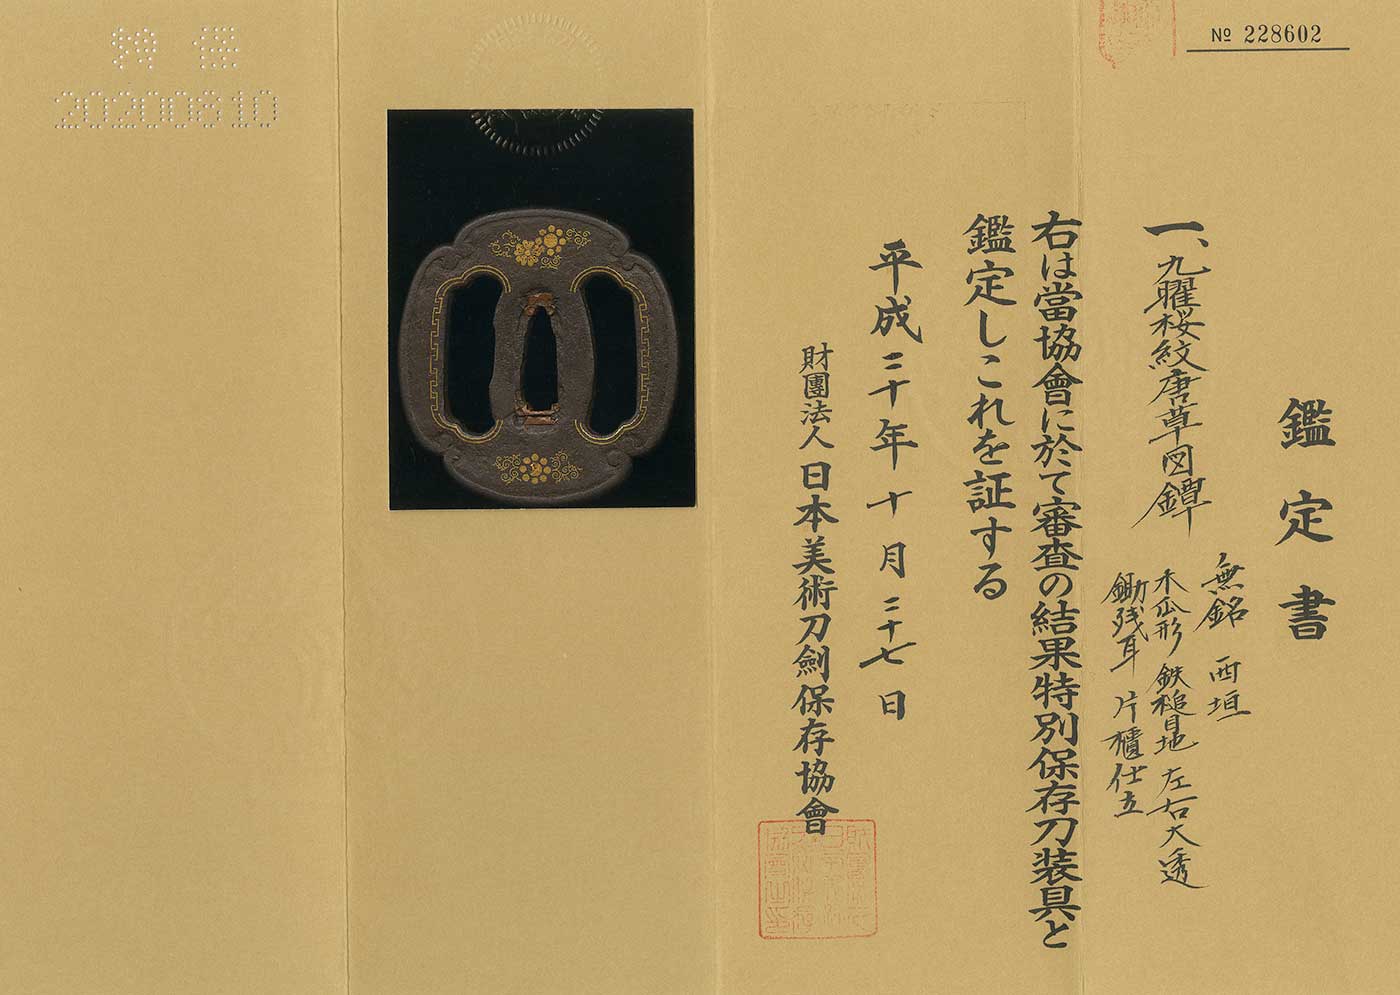 № 228602
鑑定書
一、九曜桜紋唐草図鐔
無銘 西垣
木瓜形 鉄槌目地 左右大透
鋤残耳 片櫃仕立
右は當協會に於て審査の結果特別保存刀装具と
鑑定しこれを証する
平成二十年十月二十七日
財團法人 日本美術刀劍保存協會
特保
20200810